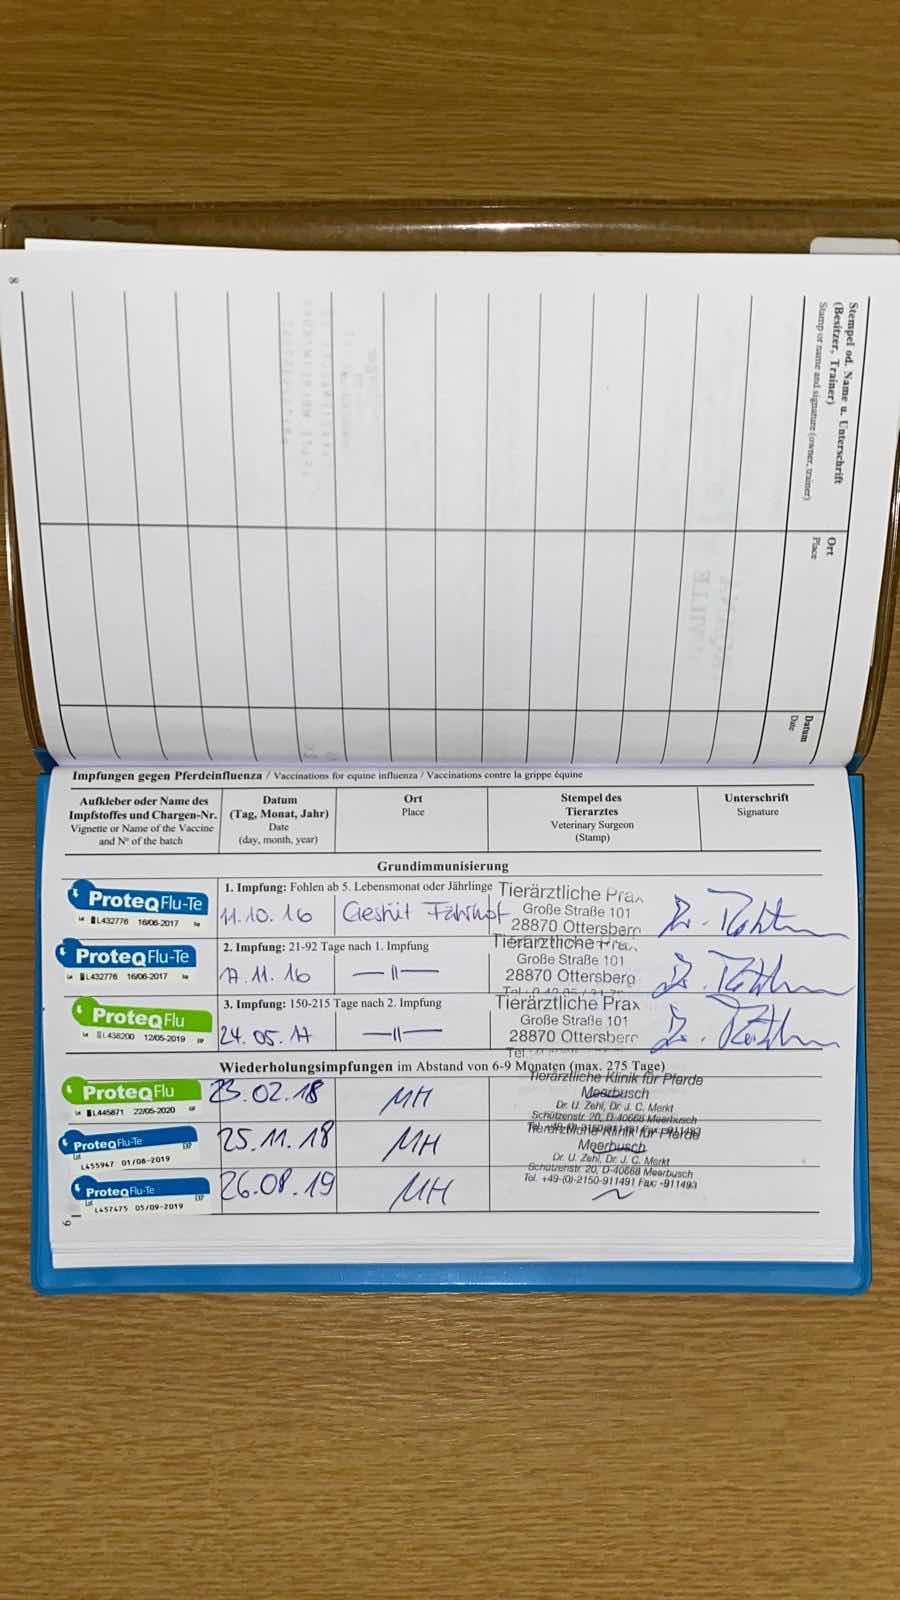 8
Stempel od. Name u. Unterschrift
(Besitzer, Trainer)
Stamp or name and signature (owner, trainer)
Ort
Place
Datum
Date
Impfungen gegen Pferdeinfluenza / Vaccinations for equine influenza / Vaccinations contre la grippe équine
Aufkleber oder Name des
Impfstoffes und Chargen-Nr.
Vignette or Name of the Vaccine
and N° of the batch
Datum
(Tag, Monat, Jahr)
Date
(day, month, year)
Ort
Place
Stempel des
Tierarztes
Veterinary Surgeon
(Stamp)
Unterschrift
Signature
Grundimmunisierung
1. Impfung: Fohlen ab 5. Lebensmonat oder Jährlinge
ProteqFlu-Te
L432776 16/06/2017
11.10.16
Gestüt Fährhof
Tierärztliche Prax
Große Straße 101
28870 Ottersberg
2. Impfung: 21-92 Tage nach 1. Impfung
ProteqFlu-Te
L432776 16/06/2017
17.11.16
—||—
Tierärztliche Prax
Große Straße 101
28870 Ottersberg
3. Impfung: 150-215 Tage nach 2. Impfung
ProteqFlu
L436200 12/05/2019
24.05.17
—||—
Tierärztliche Prax
Große Straße 101
28870 Ottersberg
Tel
Wiederholungsimpfungen im Abstand von 6-9 Monaten (max. 275 Tage)
ProteqFlu
L445871 22/05/2020
23.02.18
MH
Tierärztliche Klinik für Pferde
Meerbusch
Dr. U. Zehl, Dr. J. C. Merkt
Schützenstr. 20, D-40668 Meerbusch
ProteqFlu-Te
EXP
L455947 01/08-2019
25.11.18
MH
Tierärztliche Klinik für Pferde
Meerbusch
Dr. U. Zehl, Dr. J. C. Merkt
Schützenstr. 20, D-40668 Meerbusch
Tel. +49-(0)-2150-911491 Fax: -911493
ProteqFlu-Te
Lot EXP
L457475 05/09-2019
26.08.19
MH
9